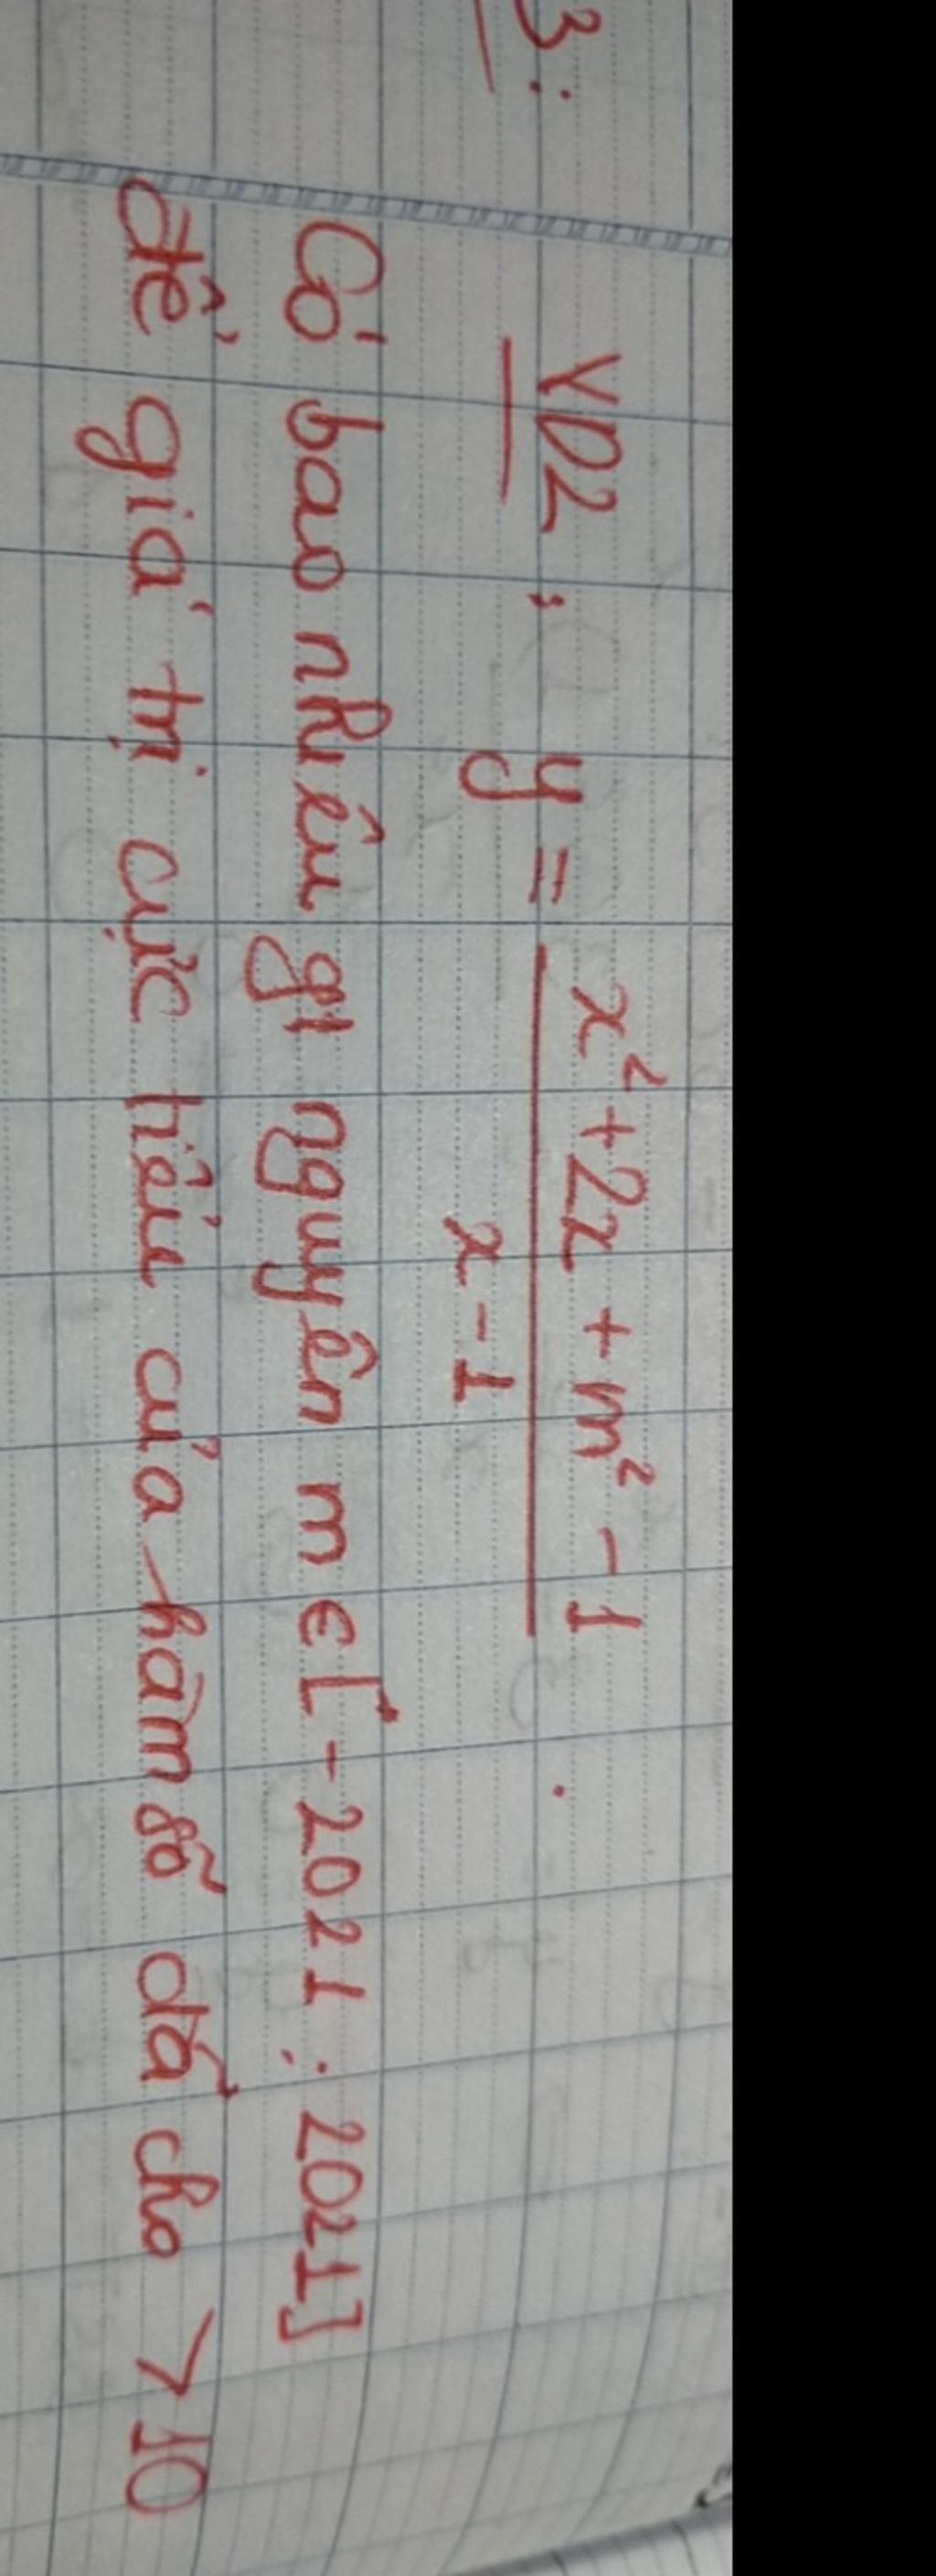 3:
VD2: y = \frac{x² + 2x + m² - 1}{x - 1} .
Có bao nhiêu gt nguyên m ∈ [-2021; 2021]
để giá trị cực tiểu của hàm số đã cho > 10